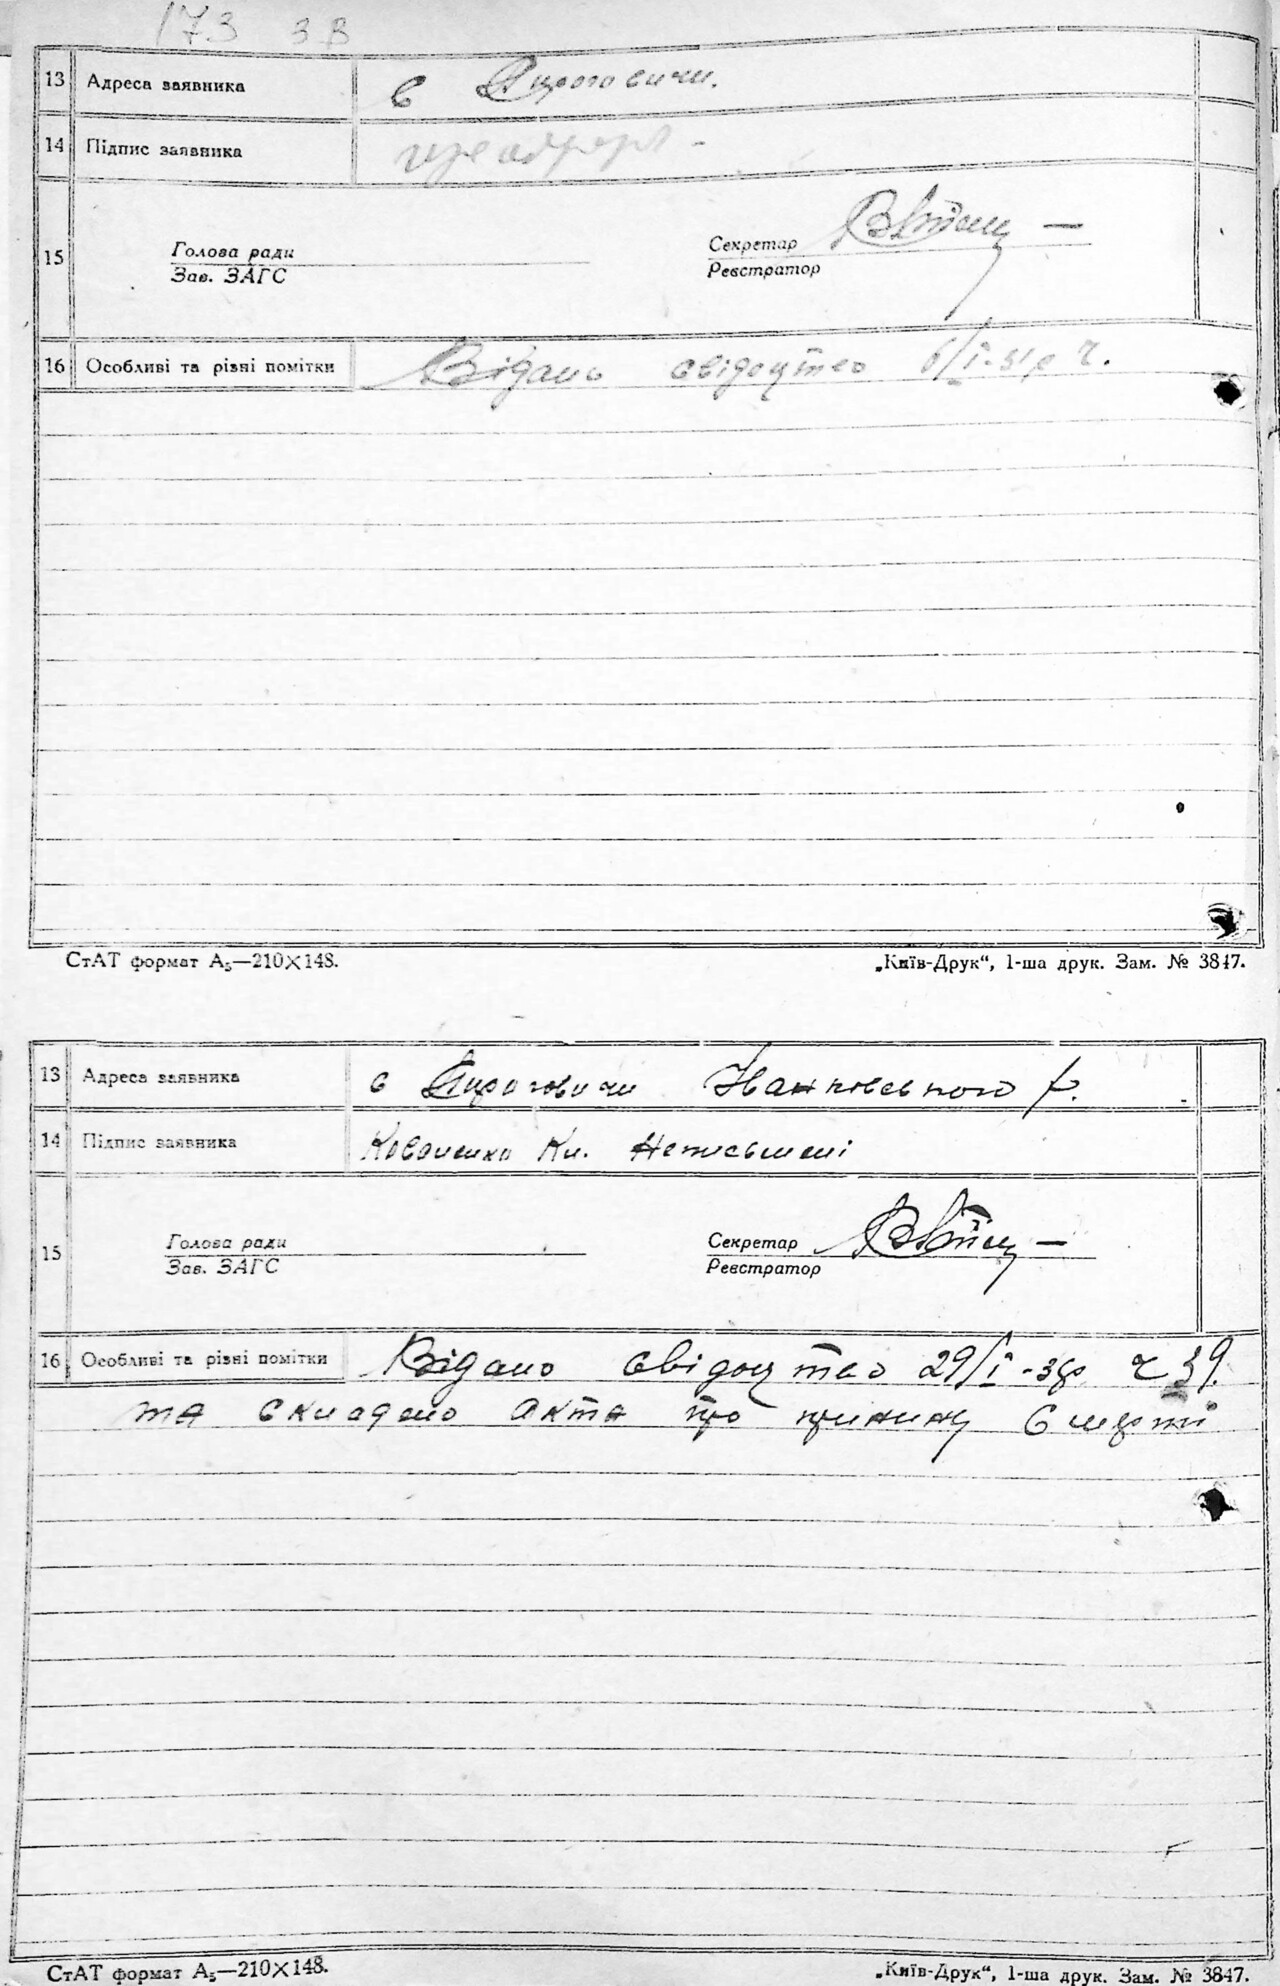 173 зв
13 Адреса заявника с Пироговичи.
14 Підпис заявника
15 Голова ради Секретар
Зав. ЗАГС Реєстратор
16 Особливі та різні помітки Відано свідоцтво 6/I-31р ч.
СтАТ формат А₅—210×148. „Київ-Друк“, 1-ша друк. Зам. № 3847.
13 Адреса заявника с Пироговичи Іванківського р.
14 Підпис заявника Коваленко Кл. Неписьмені
15 Голова ради Секретар
Зав. ЗАГС Реєстратор
16 Особливі та різні помітки Відано свідоцтво 29/I-3 р ч 39.
та складено акта про причину смерти
СтАТ формат А₅—210×148. „Київ-Друк“, 1-ша друк. Зам. № 3847.